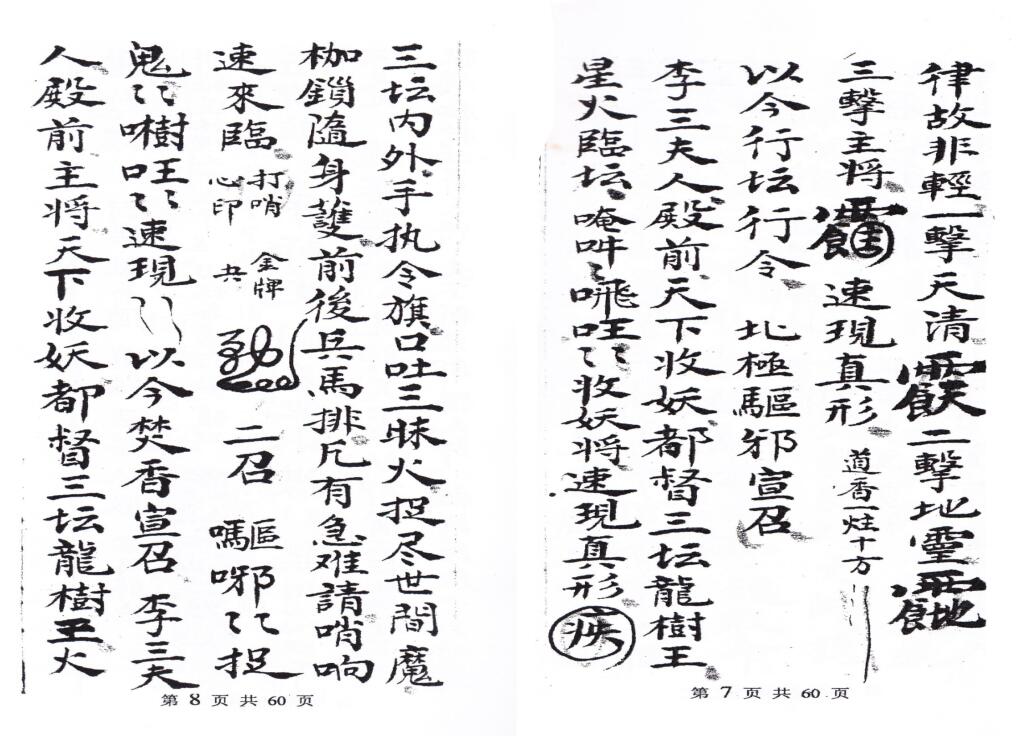 律故非輕一擊天清二擊地靈
三擊主將速現真形道香一炷十方
以今行坛行令北極驅邪宣召
李三夫人殿前天下收妖都督三坛龍樹王
星火臨坛唵吽〻𠺗㕵〻收妖將速現真形
第7页共60页
三坛内外手执令旗口吐三昧火捉尽世間魔
枷鎖隨身護前後兵馬排凡有急难請哨响
速來臨打哨心印金牌共勅二召驅邪〻捉
鬼〻㕵〻速現以今焚香宣召李三夫
人殿前主将天下收妖都督三坛龍樹王火
第8页共60页